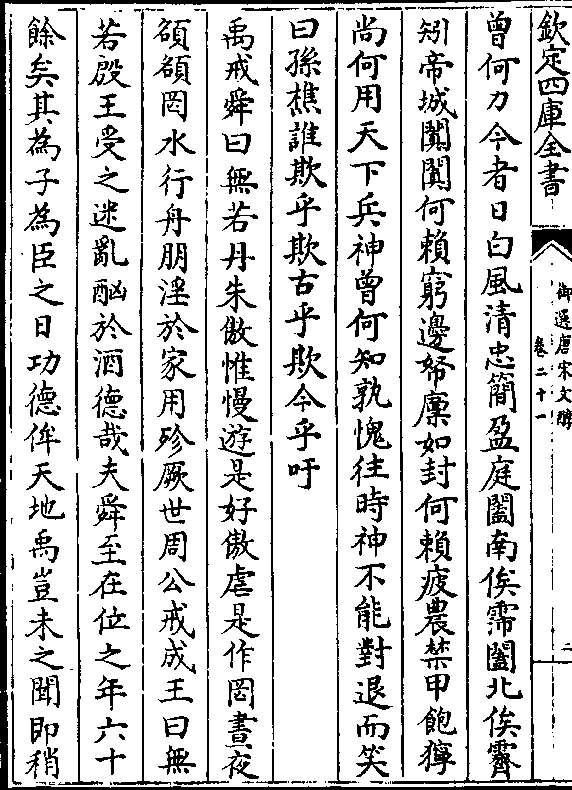 欽定四庫全書
御選唐宋文醇
卷二十一
二
曾何力今者日白風清忠簡盈庭闔南俟霈闔北俟霽
矧帝城闐闐何賴窮邊帑廩如封何賴疲農禁甲飽獰
尚何用天下兵神曾何知孰愧往時神不能對退而笑
曰孫樵誰欺乎欺古乎欺今乎吁
禹戒舜曰無若丹朱傲惟慢遊是好傲虐是作罔晝夜
頟頟罔水行舟朋淫於家用殄厥世周公戒成王曰無
若殷王受之迷亂酗於酒德哉夫舜至在位之年六十
餘矣其為子為臣之日功德侔天地禹豈未之聞即稍